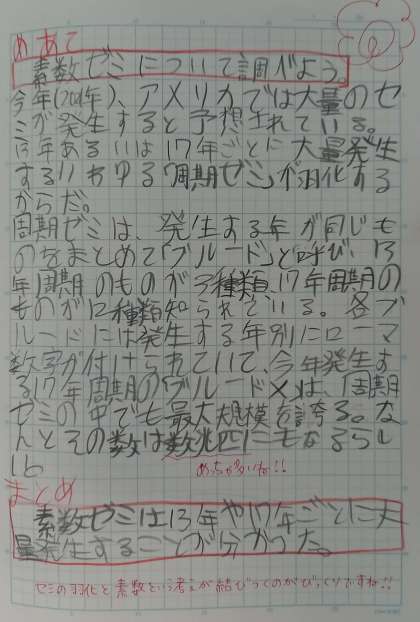 めあて
素数ゼミについて調べよう。
今年(2021年)、アメリカでは大量のセ
ミが発生すると予想されている。
13年あるいは17年ごとに大量発生
するいわゆる「周期ゼミ」が羽化する
からだ。
周期ゼミは、発生する年が同じも
のをまとめて「ブルード」と呼び、13
年周期のものが3種類、17年周期の
ものが12種類知られている。各ブ
ルードには発生する年別にローマ
数字が付けられていて、今年発生す
る17年周期の「ブルードX」は、「周期
ゼミの中でも最大規模を誇る。な
んとその数は数兆匹にもなるらし
い。
めっちゃ多いね!!
まとめ
素数ゼミは13年や17年ごとに大
量発生することが分かった。
セミの羽化と素数という考えが結びつくのがびっくりですね!!